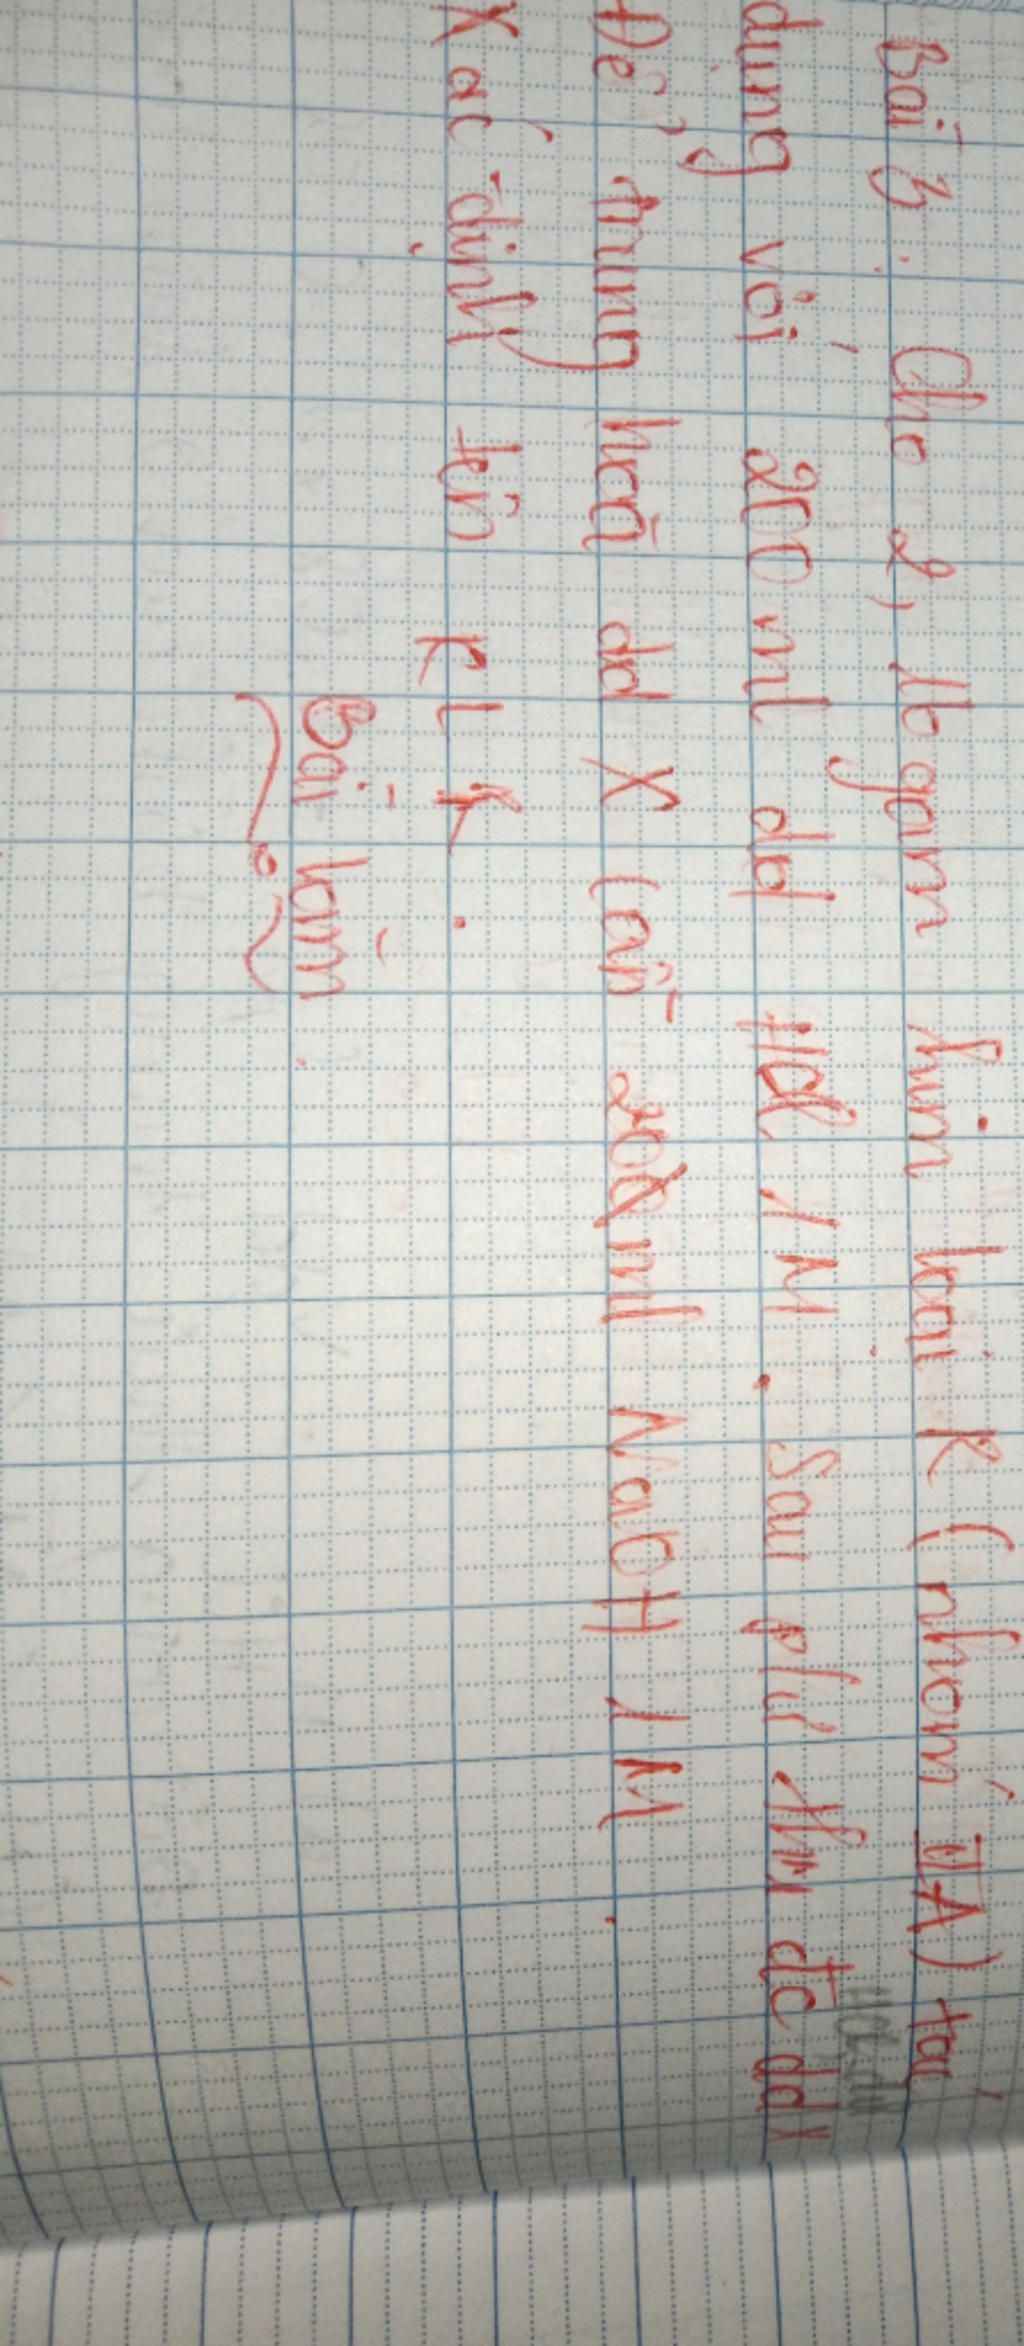 Bài 3: Cho 2,16 gam kim loại R (nhóm IIA) tác
dụng với 200 ml dd HCl 1M. Sau pfư thu đc dd X
Để trung hoà dd X cần 20 ml NaOH 1M.
Xác định tên KL R.
Bài làm